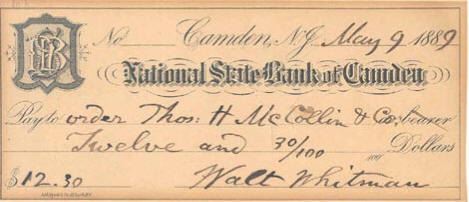 No Camden, N.J. May 9 1889
National State Bank of Camden
Pay to order Thos: H McCollin & Co, bearer
Twelve and 30/100 Dollars
$12.30 Walt Whitman